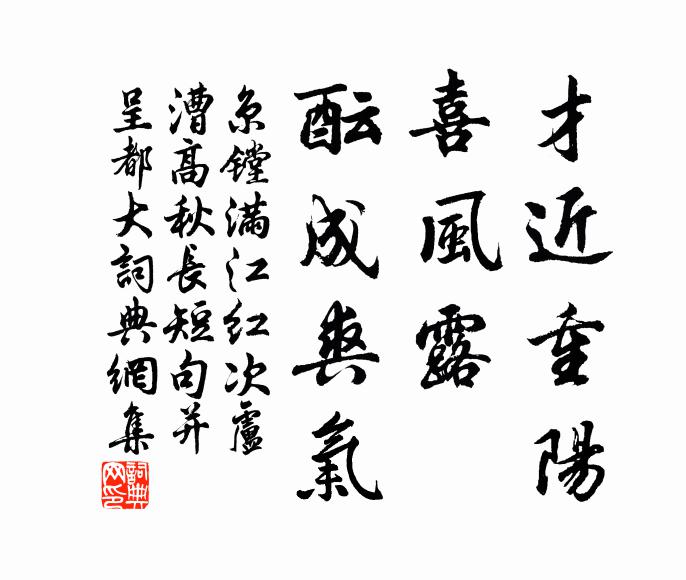 才近重陽
喜風露
酝成爽氣
京镗满江红次盧
漕高秋長短句并
呈都大詞典網集
詞典网印